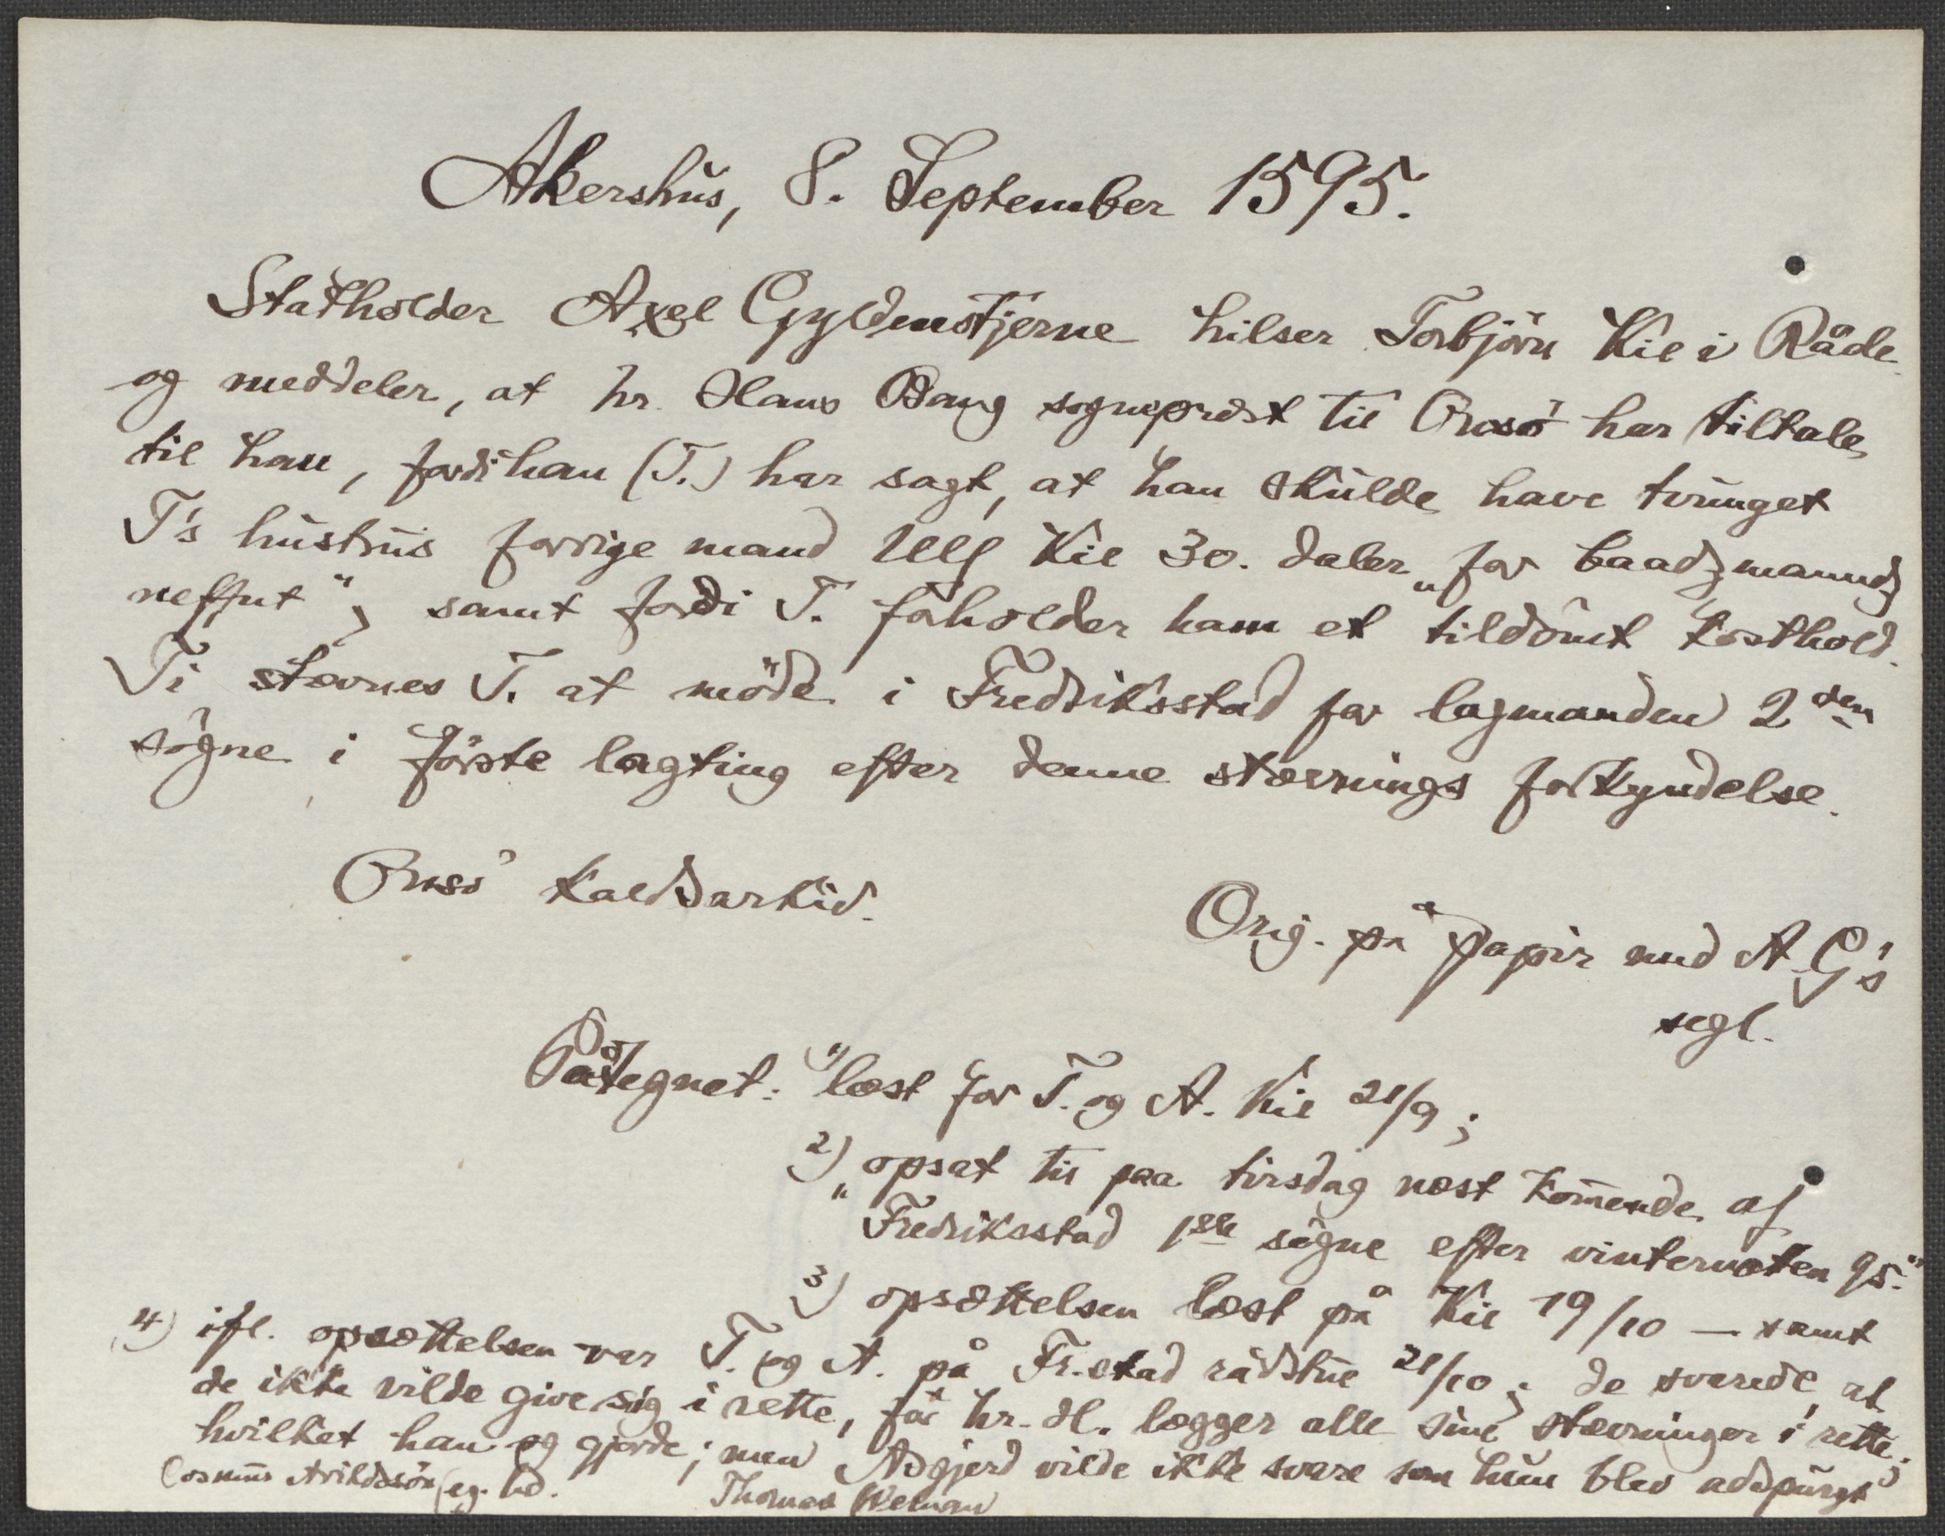 Akershus, 8. September 1595.
Statholder Axel Gyldenstjerne hilser Torbjörn Kil i Råde
og meddeler, at hr. Hans Bang sogneprest til Onsö har tiltale
til ham, fordi han (T.) har sagt, at han skulde have tvunget
T's hustrus forrige mand Ulf Kil 30. daler „for baadzmanndz
neffnt", samt fordi T. forholder ham et tildömt kosthold.
Ti stævnes T. at möde i Fredriksstad for lagmanden 2den
sögne i förste lagting efter denne stævnings forkyndelse.
Onsö kaldsarkiv.
Orig. på papir med A. G's
segl.
Påtegnet: 1) læst for T. og A. Kil 21/9;
2) „opsat til paa tirsdag næst kom̄ende af
Fredriksstad 1ste sögne efter vinternæten 95."
3) opsættelsen læst på Kil 19/10 — samt
4) ifl. opsættelsen var T. og A. på Fr.stad rådstue 21/10; de svarede, at
de ikke vilde give sig i rette, för hr. H. lægger alle sine stævninger i rette;
hvilket han og gjorde; men Asgjerd vilde ikke svare som hun blev adspurgt
Cosmus Arildssön (eg. hd. Thomas